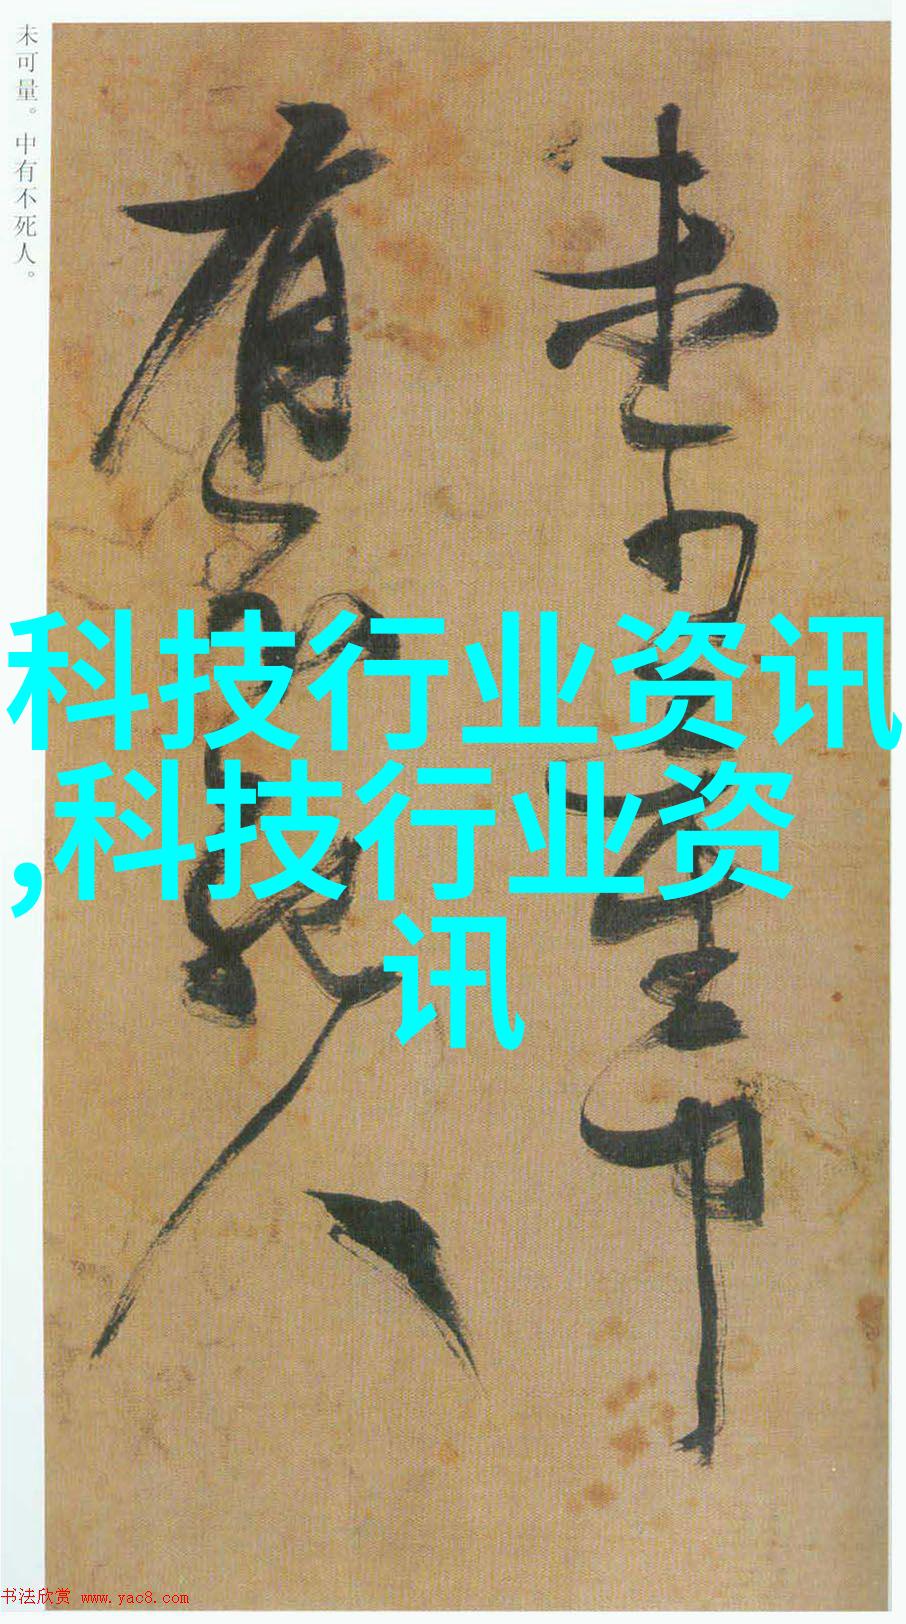 未可量。中有不死人。
未可量中
有不死人
科技行业资讯
,科技行业资
讯
书法欣赏 www.yac8.com